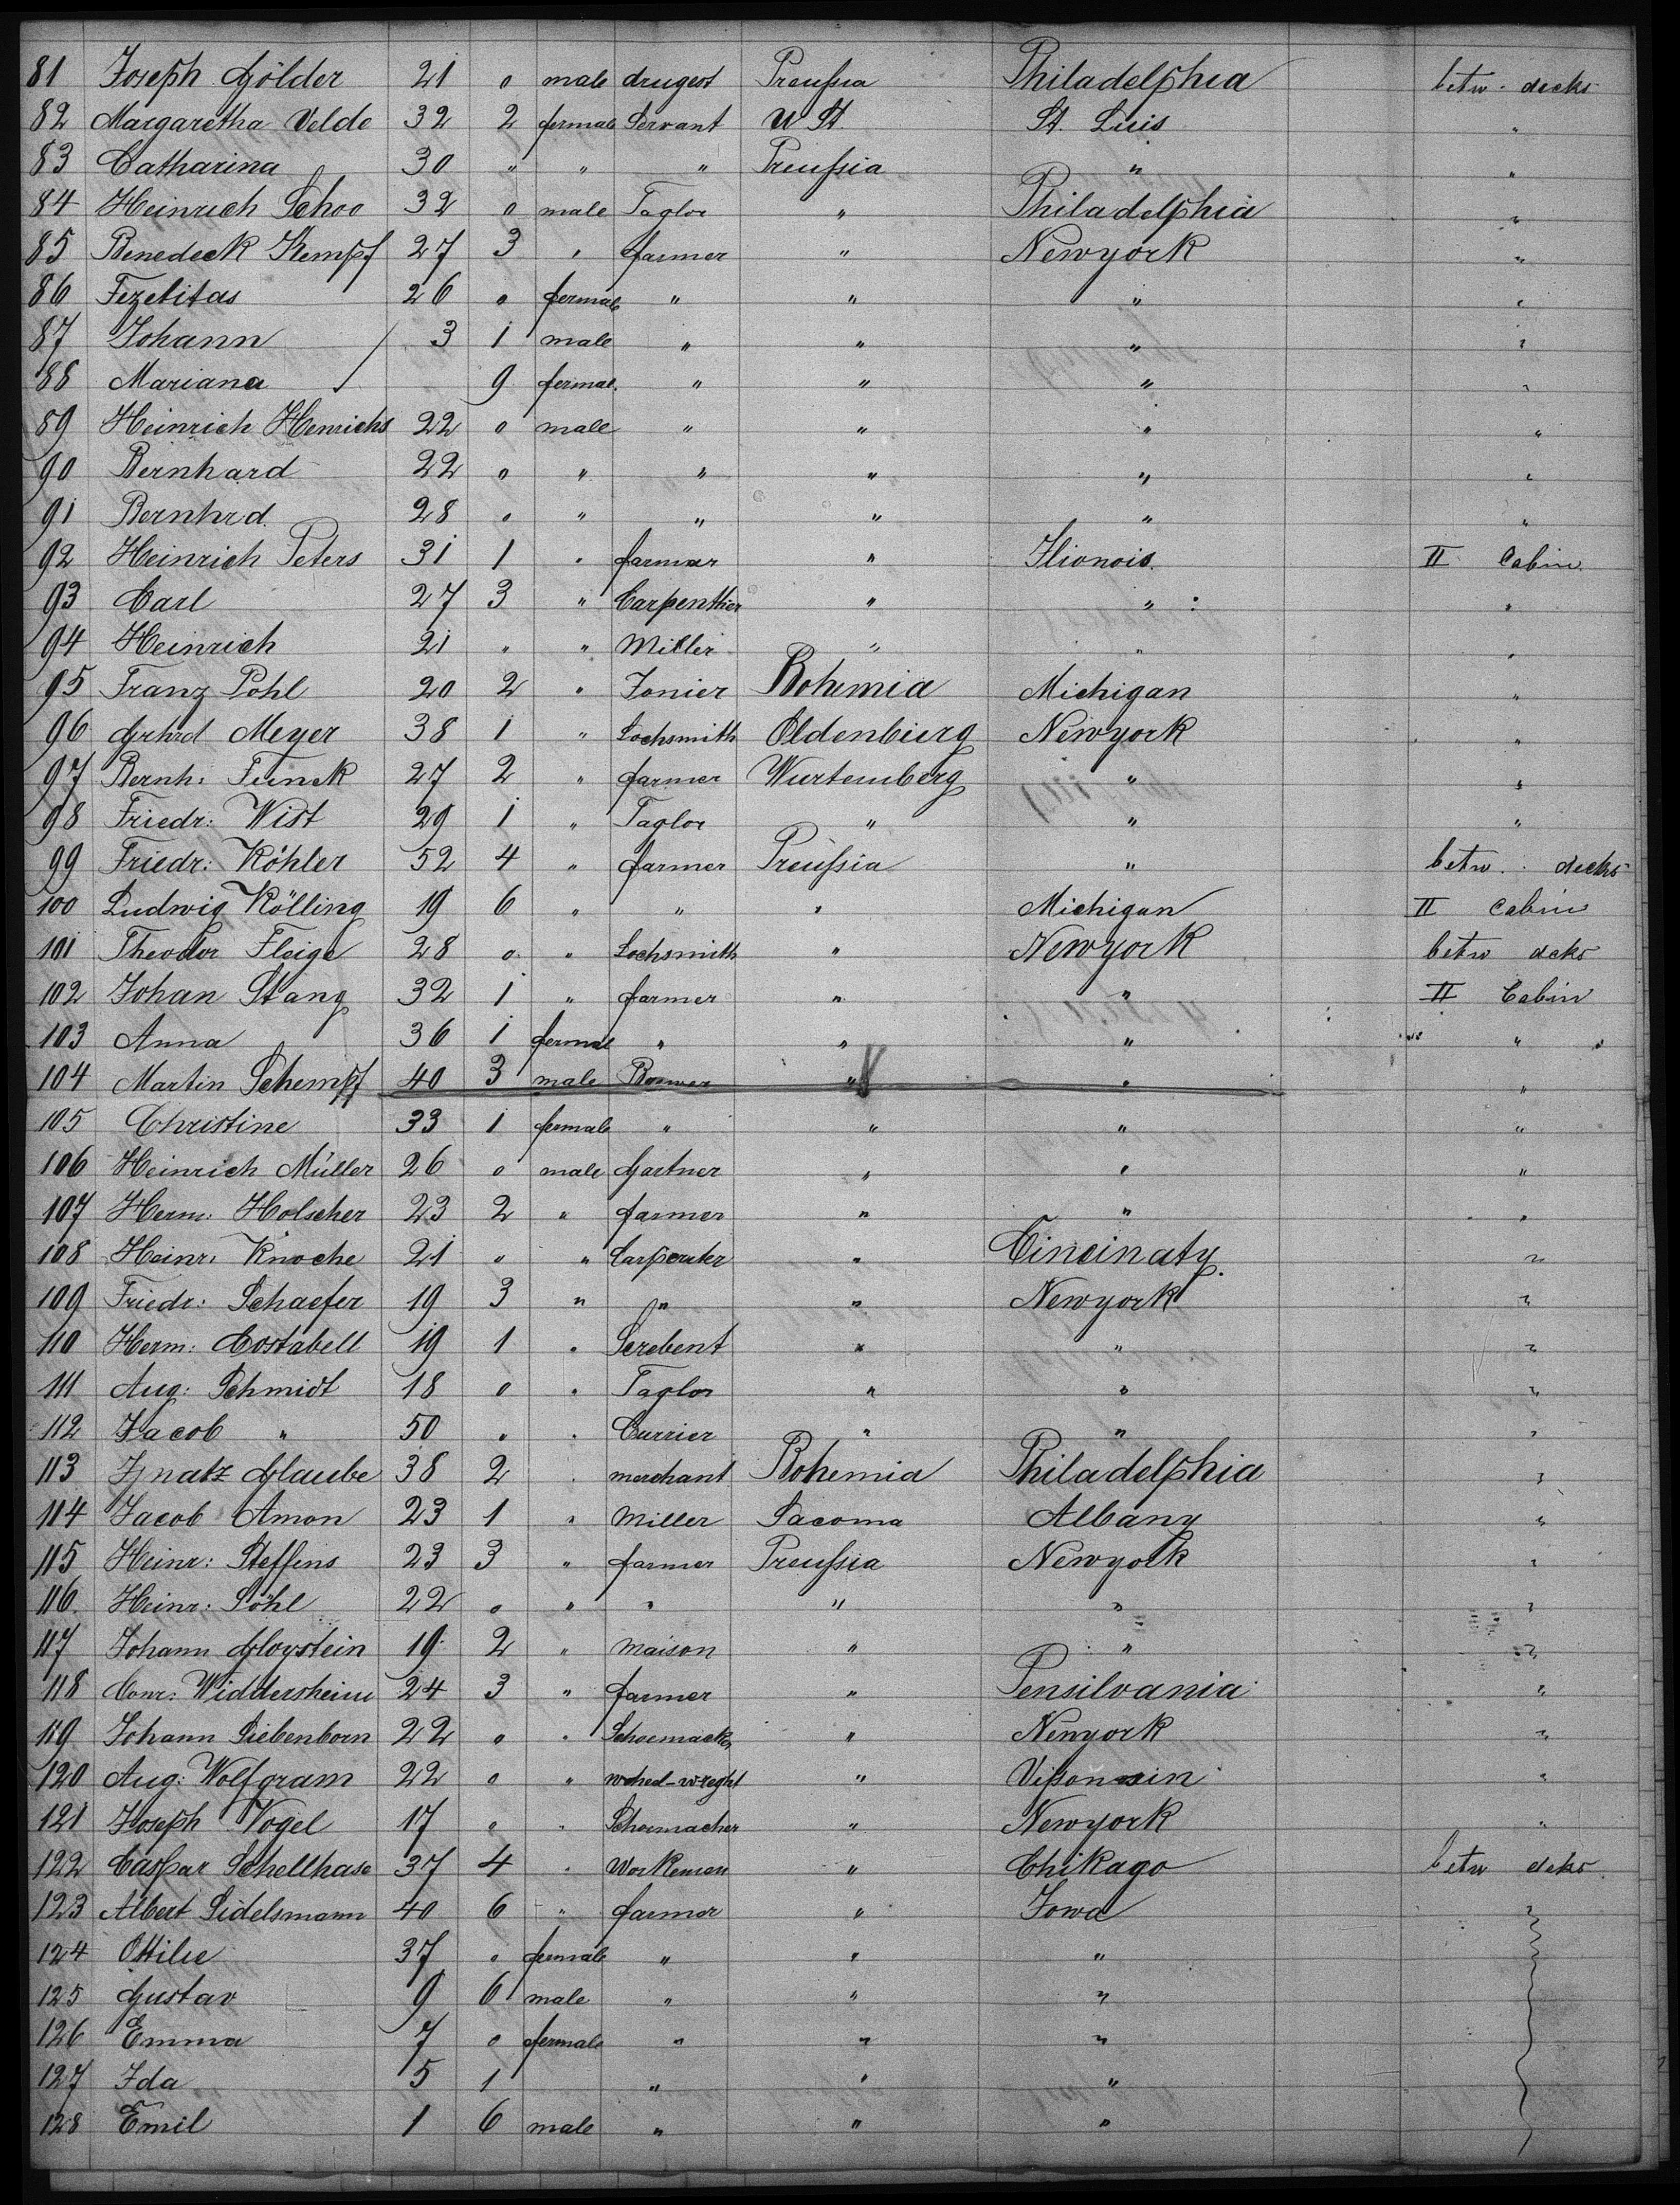 81 Joseph Gölder 21 0 male drugest Preußia Philadelphia betw. decks
82 Margaretha Velde 32 2 female Servant U St. St. Luis "
83 Catharina 30 " " " Preußia " "
84 Heinrich Schoo 32 0 male Taglor " Philadelphia "
85 Benedeck Kempf 27 3 " farmer " Newyork "
86 Fezelitas 26 0 female " " " "
87 Johann 3 1 male " " " "
88 Mariana 9 femal. " " " "
89 Heinrich Henrichs 22 0 male " " " "
90 Bernhard 22 0 " " " " "
91 Bernhrd. 28 0 " " " " "
92 Heinrich Peters 31 1 " farmer " Ilionois. II Cabin.
93 Carl 27 3 " Carpenthier " " "
94 Heinrich 21 " " Miller " " "
95 Franz Pohl 20 2 " Jonier Bohemia Michigan "
96 Gerhrd Meyer 38 1 " Lochsmith Oldenbierg Newyork "
97 Bernh: Funck 27 2 " farmer Wurtemberg " "
98 Friedr: Wist 29 1 " Taglor " " "
99 Friedr: Köhler 52 4 " farmer Preußia " betw. decks
100 Ludwig Kölling 19 6 " " " Michigan II Cabin
101 Theodor Fleige 28 0 " Lochsmith " Newyork betw deks
102 Johan Stang 32 1 " farmer " " II Cabin
103 Anna 36 1 femal " " " "
104 Martin Schempf 40 3 male " " "
105 Christine 33 1 female " " " "
106 Heinrich Müller 26 0 male Gartner " " "
107 Herm: Holscher 23 2 " farmer " " "
108 Heinr: Knoche 21 " " Carpenter " Cincinaty. "
109 Friedr: Schaefer 19 3 " " " Newyork "
110 Herm: Costabell 19 1 " Serebent " " "
111 Aug: Schmidt 18 0 " Taglor " " "
112 Jacob " 50 " " Currier " " "
113 Ignatz Glaube 38 2 " merchant Bohemia Philadelphia "
114 Jacob Amon 23 1 " Miller Sacoma Albany "
115 Heinr: Steffens 23 3 " farmer Preußia Newyork "
116. Heinr: Söhl 22 0 " " " " "
117 Johann Gloystein 19 2 " maison " " "
118 Conr: Widdersheim 24 3 " farmer " Pensilvania "
119 Johann Siebenborn 22 0 " Schoemacker " Newyork "
120 Aug: Wolfgram 22 0 " wheel-wreght " Vißonsin "
121 Joseph Vogel 17 " " Schoemacher " Newyork "
122 Caspar Schellhase 37 4 " Workeman " Chikago betw deks
123 Albert Sidelsmann 40 6 " farmer " Iowa "
124 Ottilie 37 0 female " " "
125 Gustav 9 6 male " " "
126 Emma 7 0 female " " "
127 Ida 5 1 " " "
128 Emil 1 6 male " " "